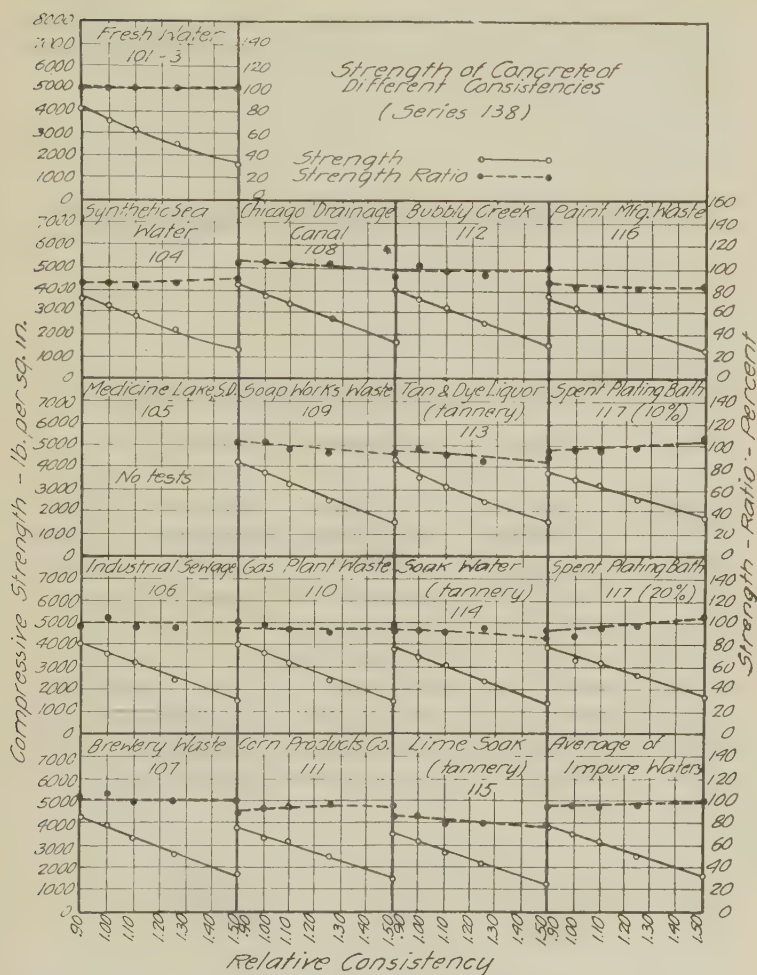 Strength of Concrete of
Different Consistencies
(Series 138)
Strength
Strength Ratio
Fresh Water
101-3
8000
7000
6000
5000
4000
3000
2000
1000
0
140
120
100
80
60
40
20
0
Synthetic Sea
Water
104
Chicago Drainage
Canal
108
Bubbly Creek
112
Paint Mfg. Waste
116
7000
6000
5000
4000
3000
2000
1000
0
160
140
120
100
80
60
40
20
0
Medicine Lake, S.D.
105
No tests
Soap Works Waste
109
Tan & Dye Liquor
(tannery)
113
Spent Plating Bath
117 (10%)
7000
6000
5000
4000
3000
2000
1000
0
140
120
100
80
60
40
20
0
Industrial Sewage
106
Gas Plant Waste
110
Soak Water
(tannery)
114
Spent Plating Bath
117 (20%)
7000
6000
5000
4000
3000
2000
1000
0
140
120
100
80
60
40
20
0
Brewery Waste
107
Corn Products Co.
111
Lime Soak
(tannery)
115
Average of
Impure Waters
7000
6000
5000
4000
3000
2000
1000
0
140
120
100
80
60
40
20
0
.90
1.00
1.10
1.30
1.50
.90
1.00
1.10
1.30
1.50
.90
1.00
1.10
1.30
1.50
.90
1.00
1.10
1.30
1.50
Compressive Strength - lb. per sq. in.
Strength - Ratio - Percent
Relative Consistency